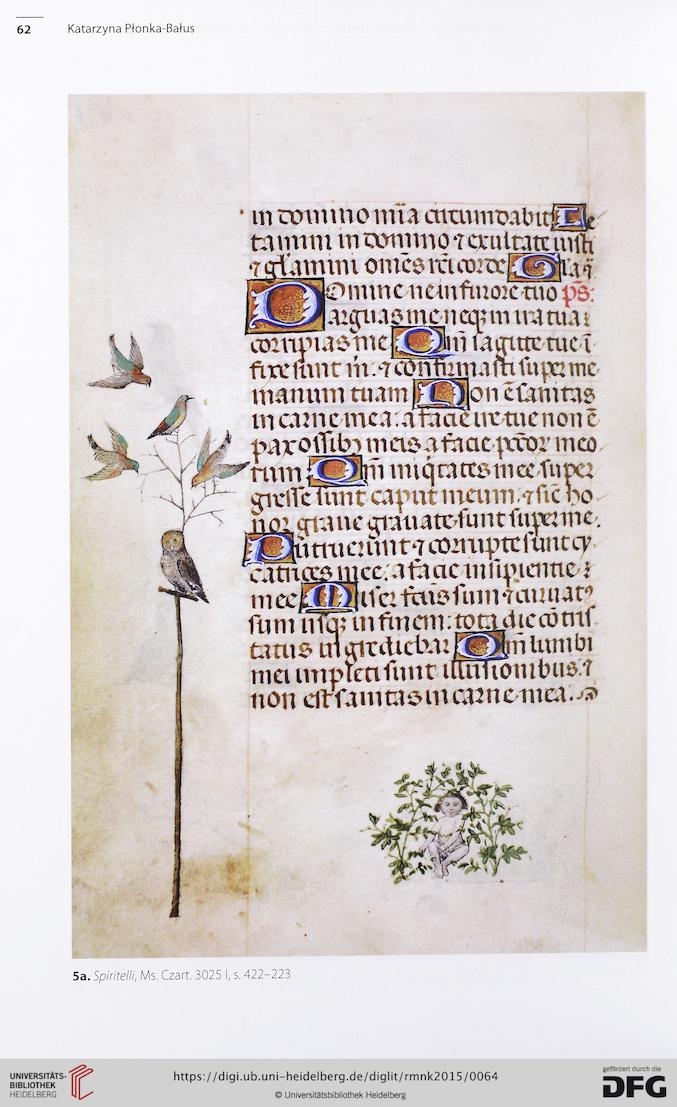 62 Katarzyna Płonka-Bałus
in domino mīa circumdabit Le
tamini in domino ⁊ exultate iusti
⁊ gl'amini omēs rēi corde Gl'a ī
Domine ne in furore tuo ps:
arguas me neq₃ in ira tua
corripias me Qm̄ sagitte tue ī
fixe sunt m̄. ⁊ confirmasti super me
manum tuam Non ē sanitas
in carne mea. a facie ire tue non ē
pax ossib₃ meis a facie pctōr meo
rum Qm̄ iniq̄tates mee super
gresse sunt caput meum. ⁊ sic̄ ho
nor graue grauate sunt super me.
Putruerunt ⁊ corrupte sunt cy
catrices mee. a facie insipientie
mee Miser fcūs sum ⁊ curuatꝰ
sum usq₃ in finem. tota die cōtris
tatus ingrediebar Qm̄ lumbi
mei impleti sunt illusionibus. ⁊
non est sanitas in carne mea.
5a. Spiritelli, Ms. Czart. 3025 I, s. 422–223
UNIVERSITÄTS-
BIBLIOTHEK
HEIDELBERG
https://digi.ub.uni-heidelberg.de/diglit/rmnk2015/0064
© Universitätsbibliothek Heidelberg
gefördert durch die
DFG